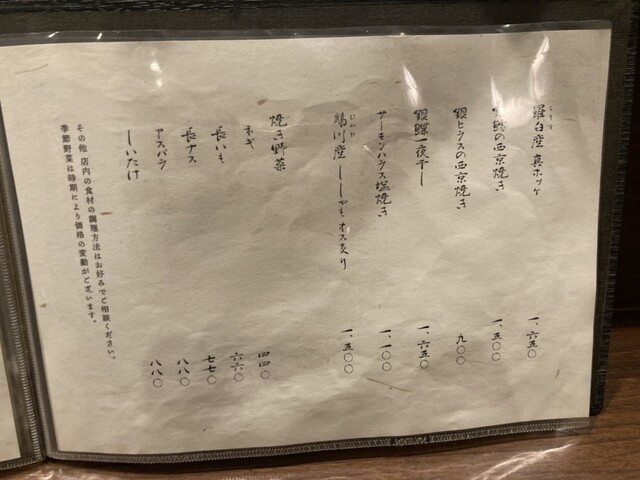 らうす
羅臼産 真ホッケ 一、六五〇
銀鱈の西京焼き 一、五〇〇
銀ヒラスの西京焼き 九〇〇
銀鱈一夜干し 一、六五〇
サーモンハラス塩焼き 一、一〇〇
むかわ
鵡川産 ししゃも オス炙り 一、五〇〇
焼き野菜
ネギ 四四〇
長いも 六六〇
長ナス 七七〇
アスパラ 八八〇
しいたけ 八八〇
その他 店内の食材の調理方法はお好みでご相談ください。
季節野菜は時期により価格の変動がございます。